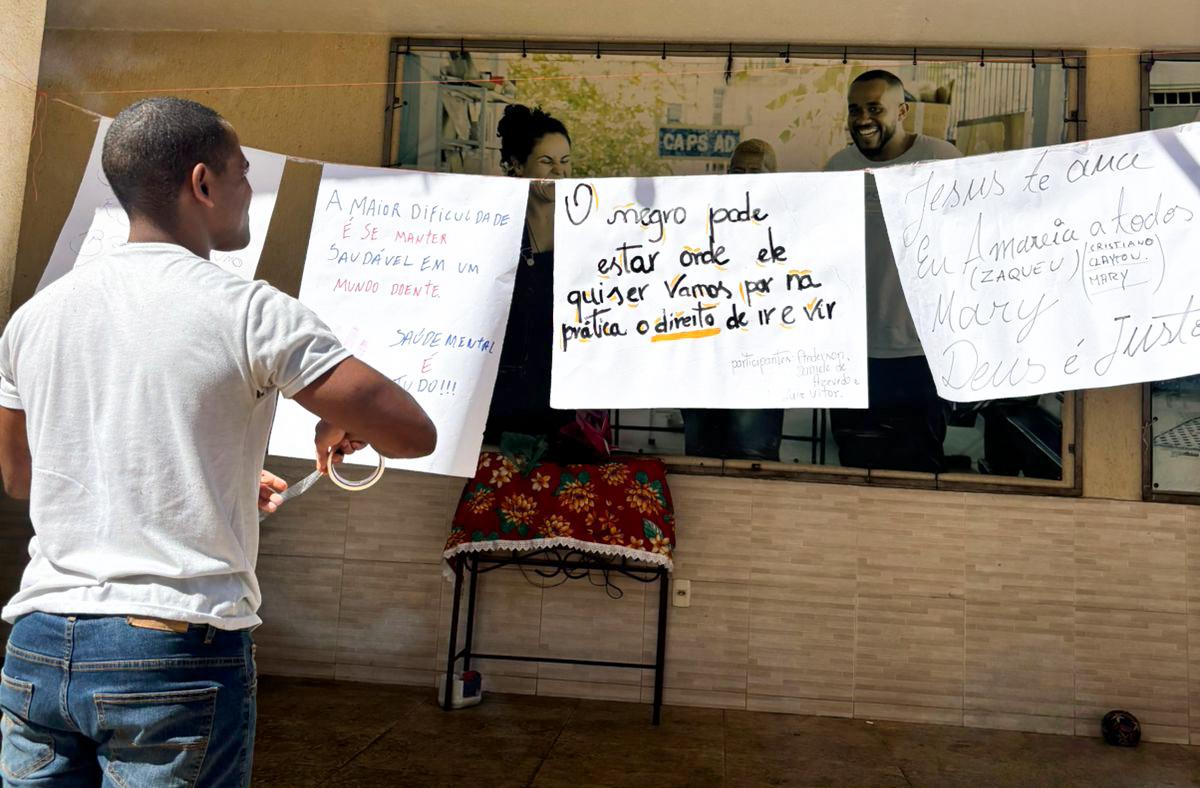 CAPS AD
A MAIOR DIFICULDADE
É SE MANTER
SAUDÁVEL EM UM
MUNDO DOENTE.
SAÚDE MENTAL
É
TUDO!!!
O negro pode
estar onde ele
quiser Vamos por na
prática o direito de ir e vir
participantes: Anderson,
Daniele de
Azevedo e
Luiz Vitor.
Jesus te ama
Eu Amareia a todos
(ZAQUEU)
(CRISTIANO
CLAYTON.
MARY)
Mary
Deus é Justo